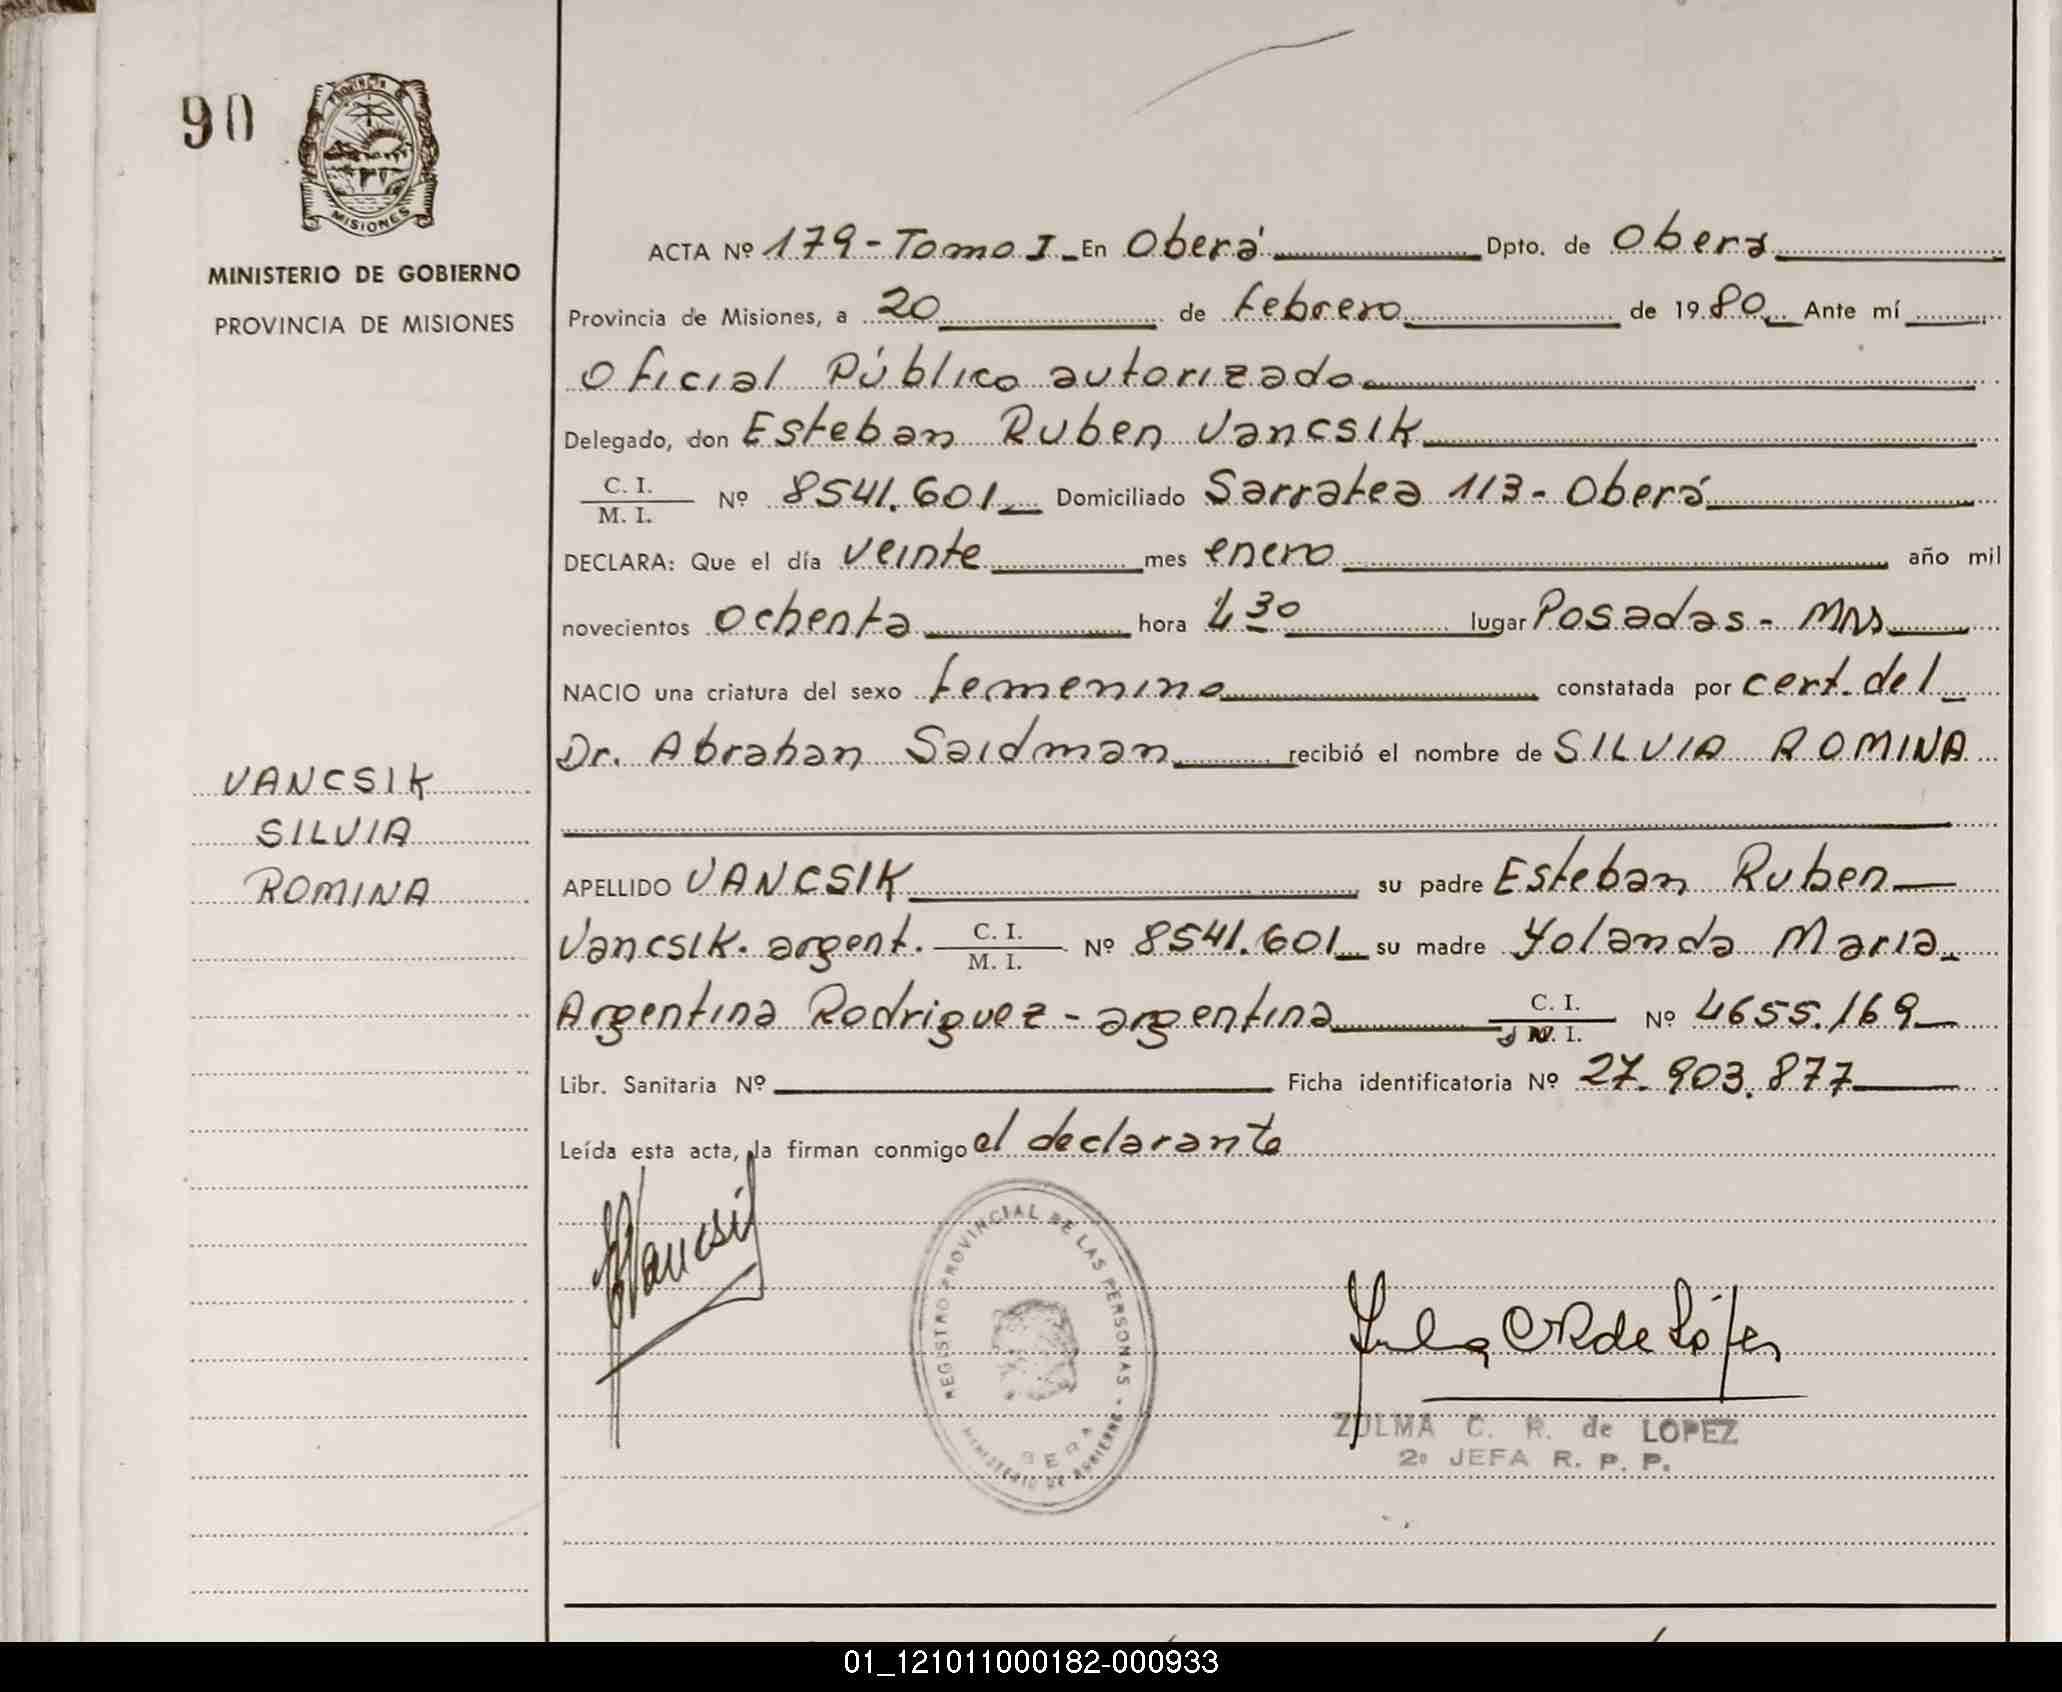 90
PROVINCIA DE
MISIONES
MINISTERIO DE GOBIERNO
PROVINCIA DE MISIONES
VANCSIK
SILVIA
ROMINA
ACTA Nº 179 - Tomo I - En Oberá Dpto. de Oberá
Provincia de Misiones, a 20 de febrero de 1980 Ante mí
Oficial Público autorizado
Delegado, don Esteban Ruben Vancsik
C. I.
M. I. Nº 8541.601 Domiciliado Sarratea 113 - Oberá
DECLARA: Que el día veinte mes enero año mil
novecientos ochenta hora 4 30 lugar Posadas - Mns
NACIO una criatura del sexo femenino constatada por cert. del
Dr. Abrahan Saidman recibió el nombre de SILVIA ROMINA
APELLIDO VANCSIK su padre Esteban Ruben
Vancsik. argent. C. I.
M. I. Nº 8541.601 su madre Yolanda Maria
Argentina Rodriguez - argentina C. I.
M. I. Nº 4655.169
Libr. Sanitaria Nº Ficha identificatoria Nº 27.903.877
Leída esta acta, la firman conmigo el declarante
Vancsik
REGISTRO PROVINCIAL DE LAS PERSONAS -
MINISTERIO DE GOBIERNO
OBERA
Zulma C R de López
ZULMA C. R. de LOPEZ
2º JEFA R. P. P.
01_121011000182-000933